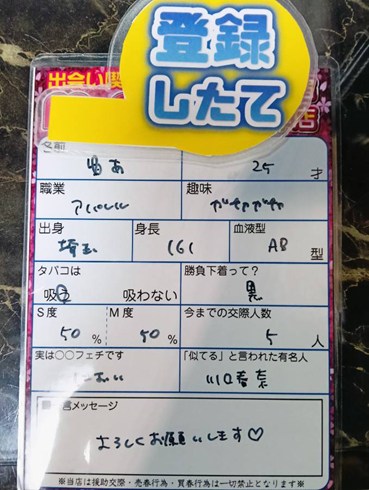 登録
したて
出会い喫
店
名前
25 才
職業
趣味
アパレル
ガチャガチャ
出身
身長
血液型
埼玉
161
AB 型
タバコは
勝負下着って?
吸う
吸わない
黒
S度
M度
今までの交際人数
50 %
50 %
5 人
実は○○フェチです
「似てる」と言われた有名人
におい
川口春奈
言メッセージ
よろしくお願いします♡
※当店は援助交際・売春行為・買春行為は一切禁止となります※